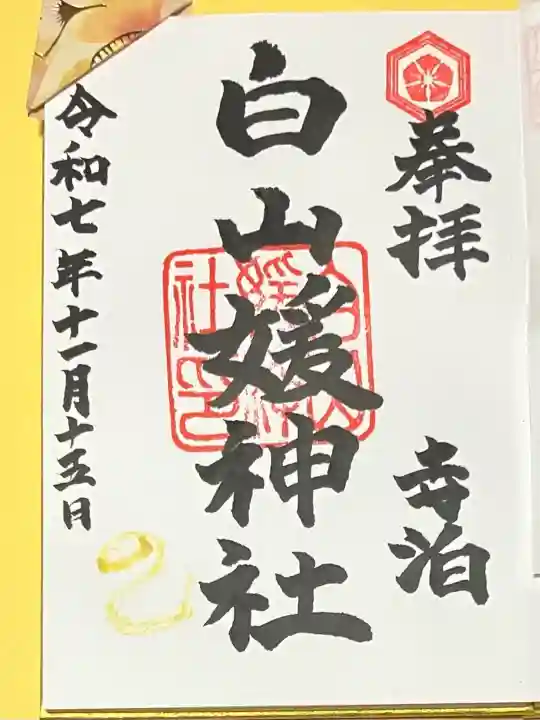 奉拝
寺泊
白山媛神社
令和七年十一月十五日